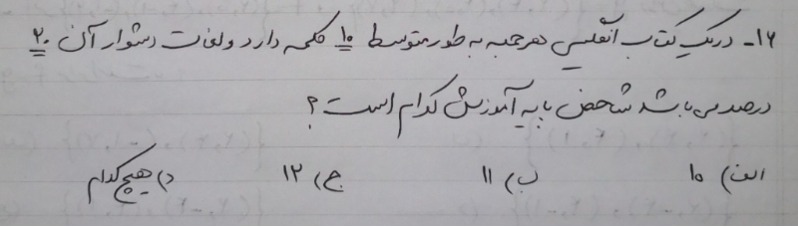 ۱۶- در یک کتاب انگلیسی هر جمله به طور متوسط ۱۰ کلمه دارد و لغات دشوار آن ۲۰
درصد می باشد شاخص پایه آموزش کدام است؟
الف) ۱۰ ب) ۱۱ ج) ۱۲ د) هیچ کدام